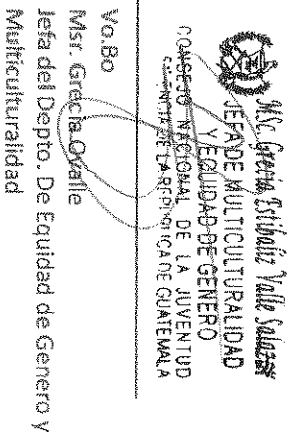 MSc. Grecia Estibaliz Valle Salazar
JEFA DE MULTICULTURALIDAD
Y EQUIDAD DE GENERO
CONSEJO NACIONAL DE LA JUVENTUD
DE LA REPUBLICA DE GUATEMALA
Vo.Bo
Msr. Grecia Ovalle
Jefa del Depto. De Equidad de Genero y
Multiculturalidad